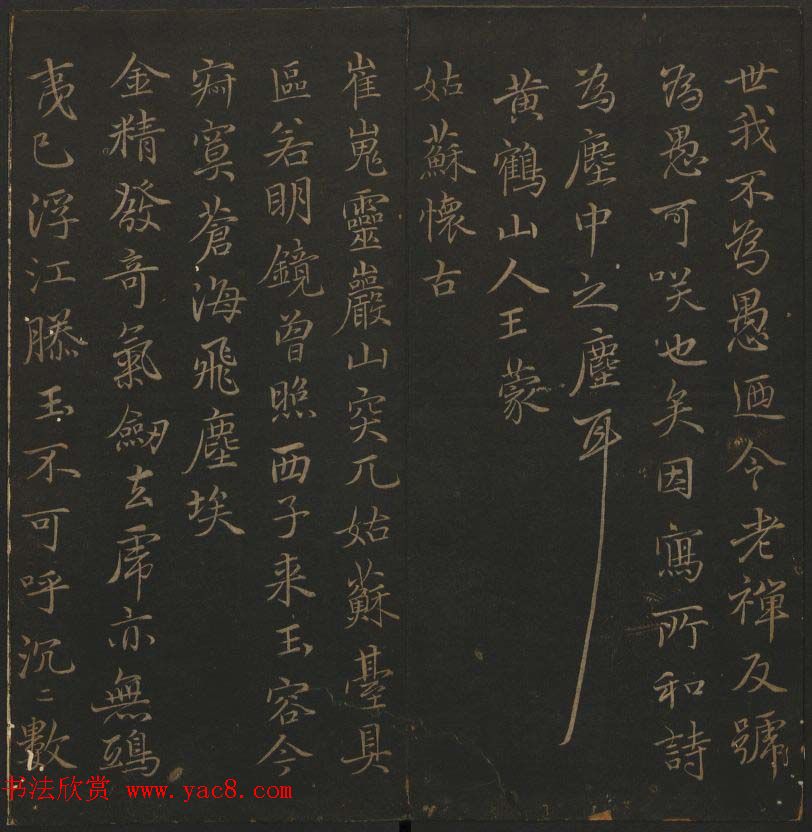 世我不為愚迺今老禪反號
為愚可咲也矣因寫所和詩
為塵中之塵耳
黄鶴山人王蒙
姑蘇懷古
崔嵬靈巖山突兀姑蘇臺具
區若明鏡曾照西子来玉容今
寂寞蒼海飛塵埃
金精發奇氣劒去虎亦無鴟
夷已浮江勝玉不可呼沉〻數
书法欣赏 www.yac8.com